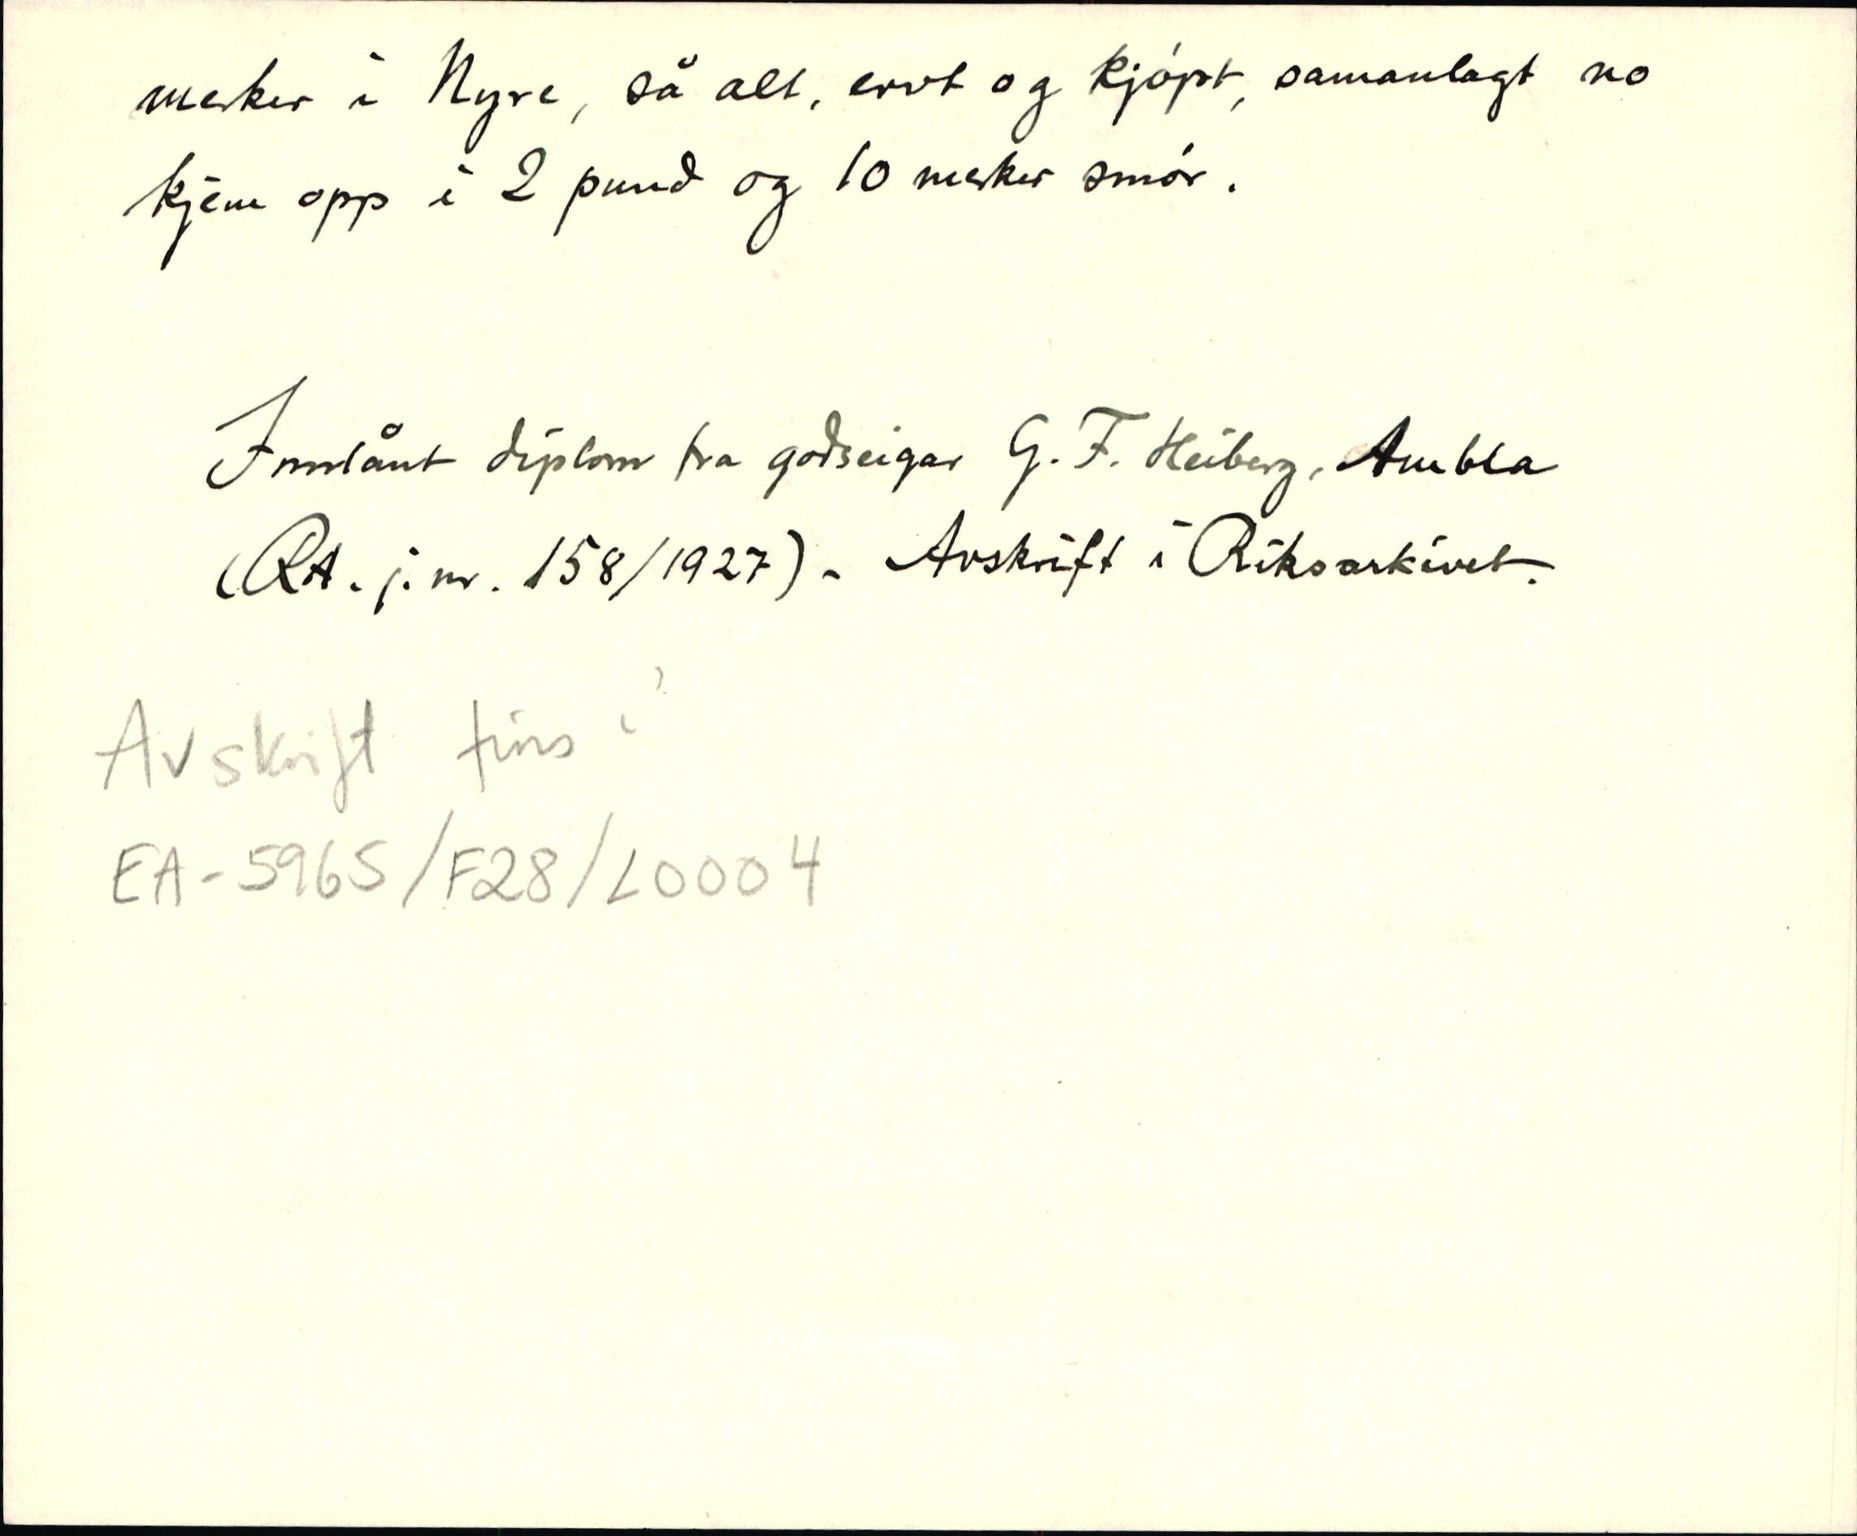 merker i Nyre, så alt, ervt og kjópt, samanlagt no
kjem opp i 2 pund og 10 merker smór.
Innlånt diplom fra godseigar G. F. Heiberg, Ambla
(RA. j.nr. 158/1927). - Avskrift i Riksarkivet.
Avskrift fins i
EA-5965/F28/L0004